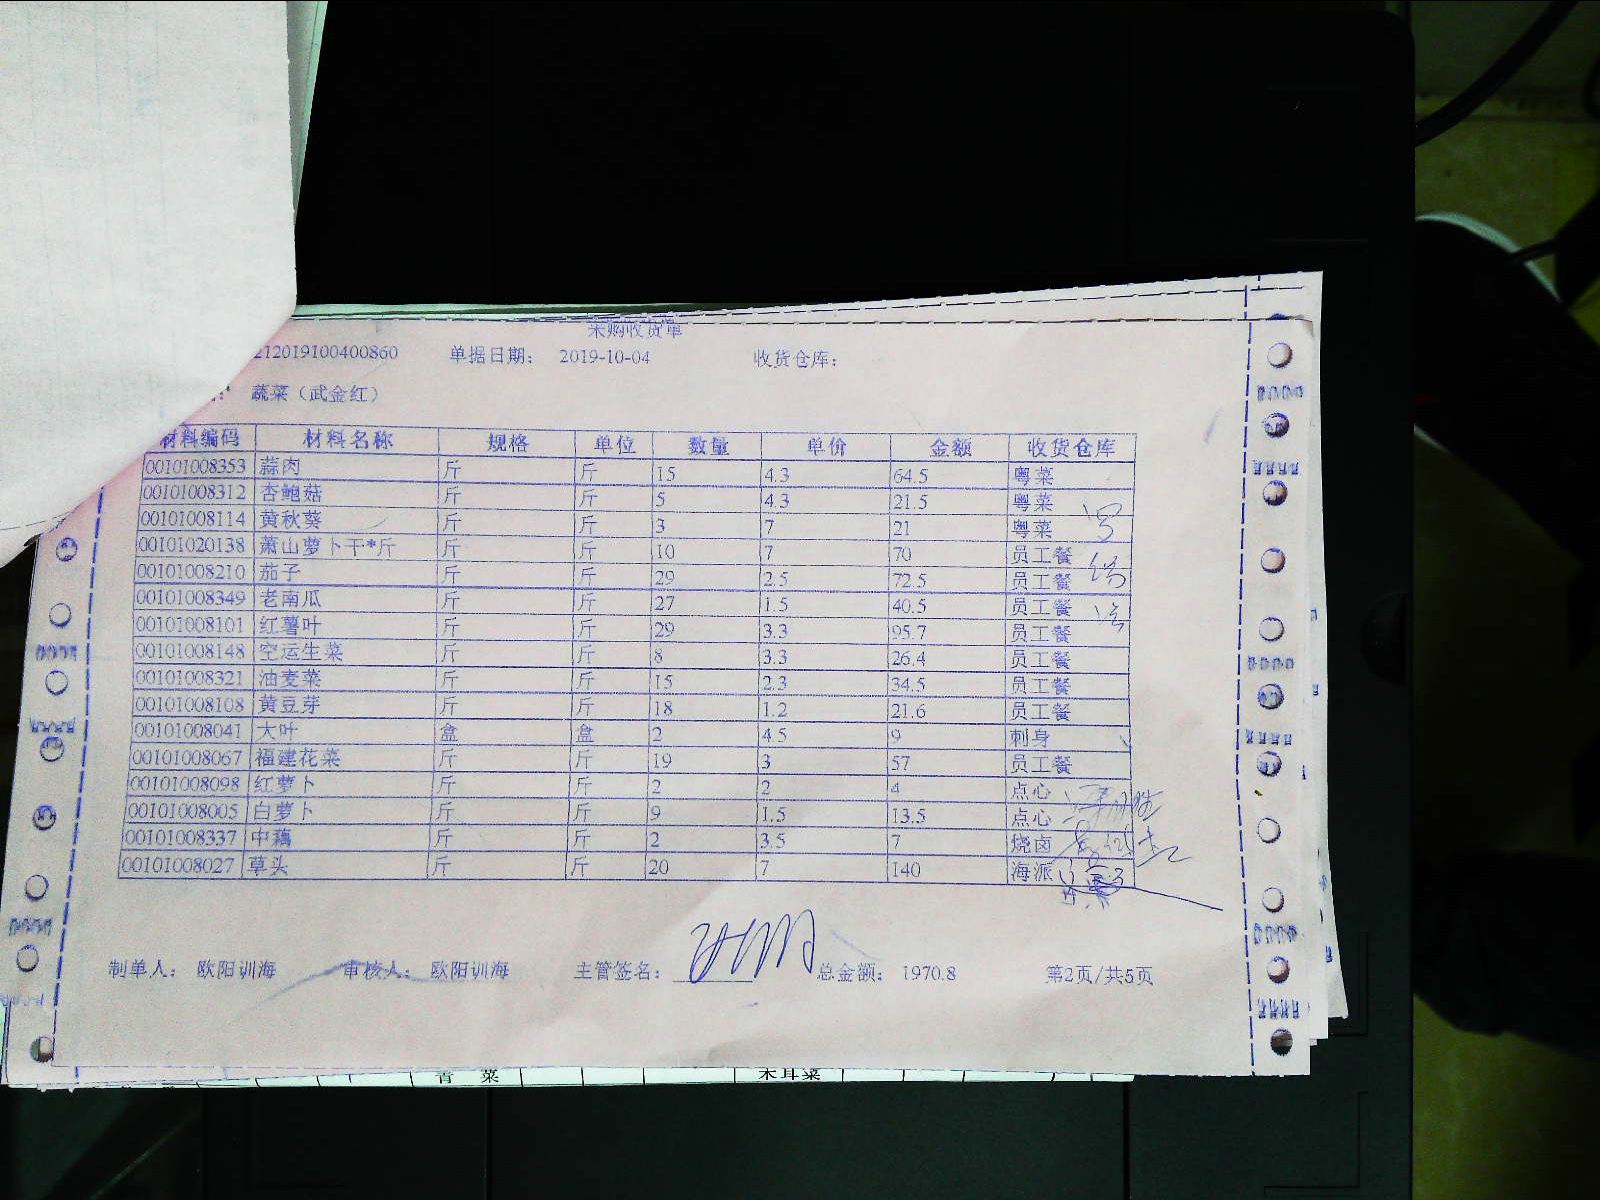 采购收货单
212019100400860 单据日期： 2019-10-04 收货仓库：
蔬菜（武金红）
材料编码 材料名称 规格 单位 数量 单价 金额 收货仓库
00101008353 蒜肉 斤 斤 15 4.3 64.5 粤菜
00101008312 杏鲍菇 斤 斤 5 4.3 21.5 粤菜
00101008114 黄秋葵 斤 斤 3 7 21 粤菜
00101020138 萧山萝卜干*斤 斤 斤 10 7 70 员工餐
00101008210 茄子 斤 斤 29 2.5 72.5 员工餐
00101008349 老南瓜 斤 斤 27 1.5 40.5 员工餐
00101008101 红薯叶 斤 斤 29 3.3 95.7 员工餐
00101008148 空运生菜 斤 斤 8 3.3 26.4 员工餐
00101008321 油麦菜 斤 斤 15 2.3 34.5 员工餐
00101008108 黄豆芽 斤 斤 18 1.2 21.6 员工餐
00101008041 大叶 盒 盒 2 4.5 9 刺身
00101008067 福建花菜 斤 斤 19 3 57 员工餐
00101008098 红萝卜 斤 斤 2 2 4 点心
00101008005 白萝卜 斤 斤 9 1.5 13.5 点心
00101008337 中藕 斤 斤 2 3.5 7 烧卤
00101008027 草头 斤 斤 20 7 140 海派
制单人： 欧阳训海 审核人： 欧阳训海 主管签名： 总金额： 1970.8 第2页/共5页
青 菜 木耳菜